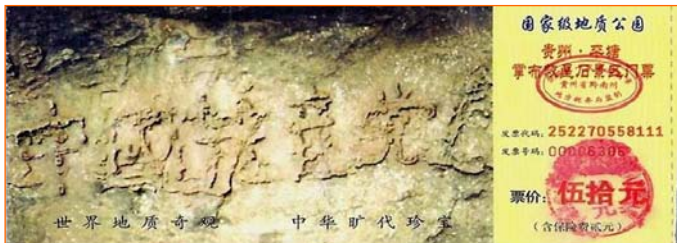 中国共产党
世界地质奇观 中华旷代珍宝
国家级地质公园
贵州·平塘
掌布藏字石景区门票
贵州省黔南州
发票代码:252270558111
发票号码:00006306
票价:伍拾元
(含保险费贰元)